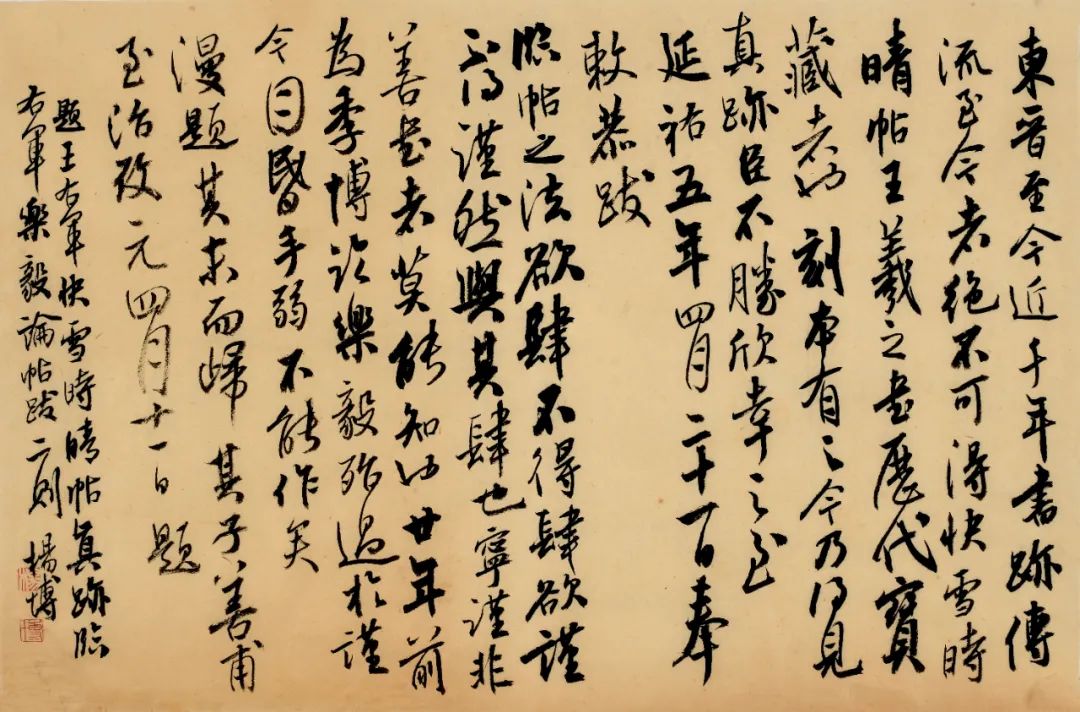 東晉至今近千年書跡傳
流至今者絕不可得快雪時
晴帖王羲之書歷代寶
藏者也刻本有之今乃得見
真跡臣不勝欣幸之至
延祐五年四月二十一日奉
敕恭跋
臨帖之法欲肆不得肆欲謹
不得謹然與其肆也寧謹非
善書者莫能知也廿年前
為季博臨樂毅殆過於謹
今目昏手弱不能作矣
漫題其末而歸其子善甫
至治改元四月十一日題
題王右軍快雪時晴帖真跡臨
右軍樂毅論帖跋二則 楊博